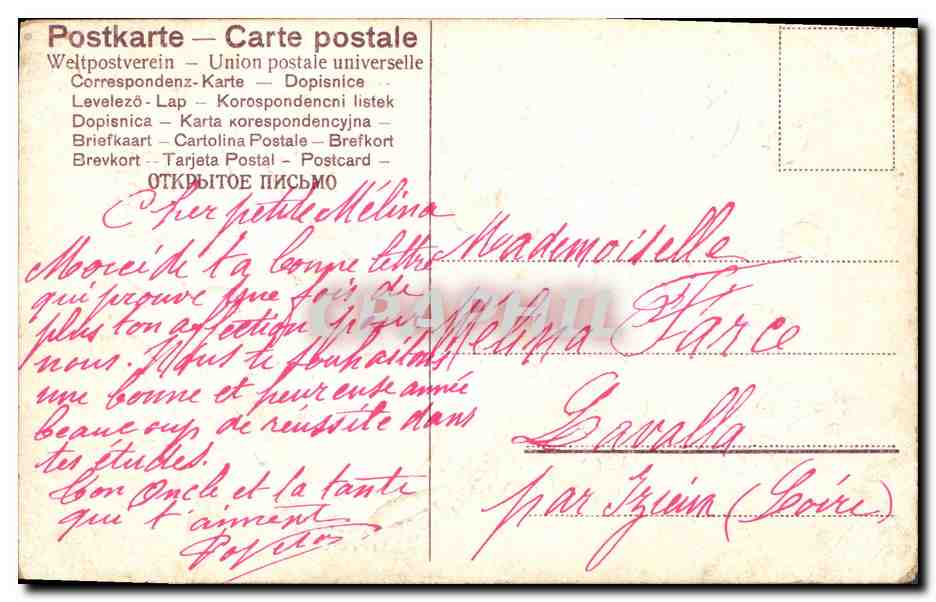 Postkarte — Carte postale
Weltpostverein — Union postale universelle
Correspondenz-Karte — Dopisnice
Levelező-Lap — Korospondencni listek
Dopisnica — Karta korespondencyjna —
Briefkaart — Cartolina Postale — Brefkort
Brevkort — Tarjeta Postal — Postcard —
ОТКРЫТОЕ ПИСЬМО
Cher petite Mélina
Merci de ta bonne lettre
qui prouve une fois de
plus ton affection pour
nous. Nous te souhaitons
une bonne et heureuse année
beaucoup de réussite dans
tes études.
Ton Oncle et ta tante
qui t'aiment
Mademoiselle
Mélina Farce
Lavalla
par Izieux (Loire)
CPAPHIL